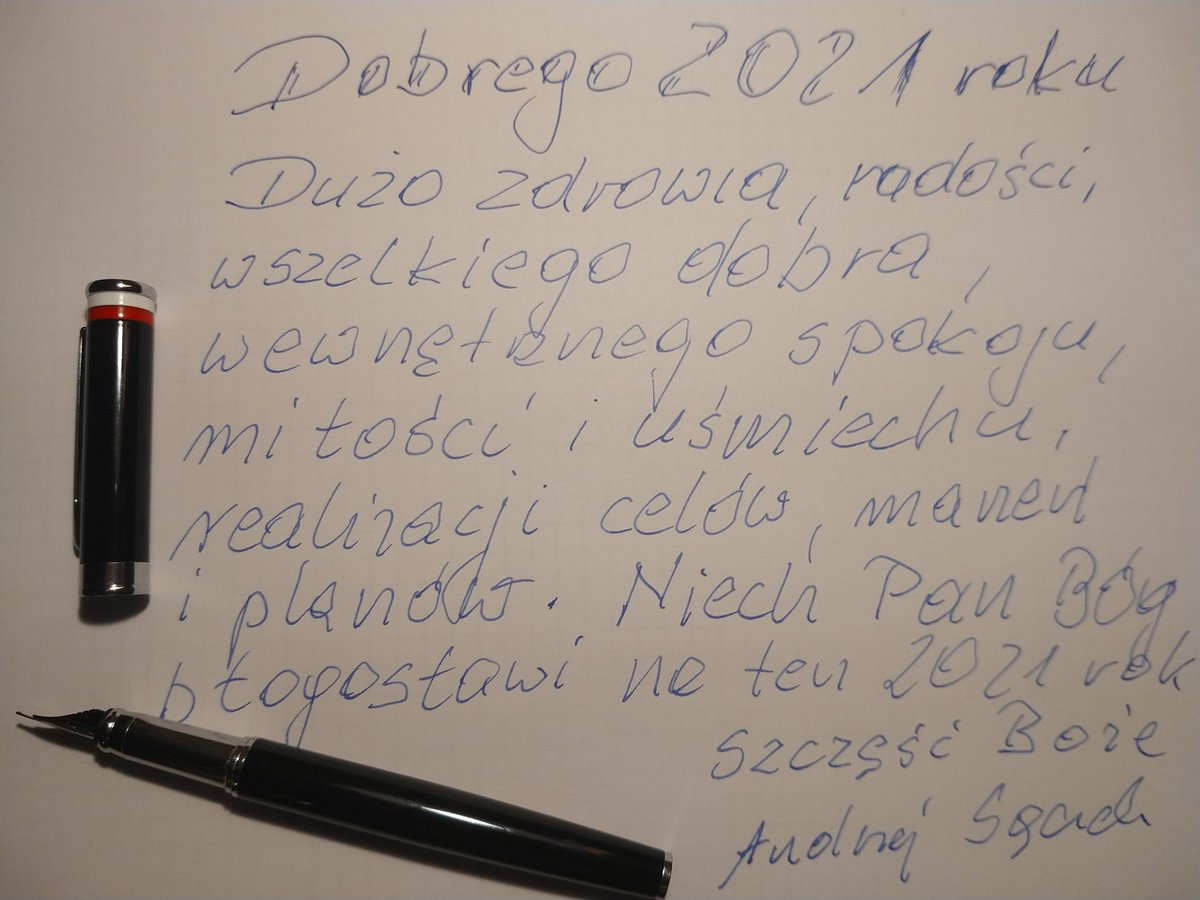 Dobrego 2021 roku
Dużo zdrowia, radości,
wszelkiego dobra,
wewnętrznego spokoju,
miłości i uśmiechu,
realizacji celów, marzeń
i planów. Niech Pan Bóg
błogosławi na ten 2021 rok
Szczęść Boże
Andrzej